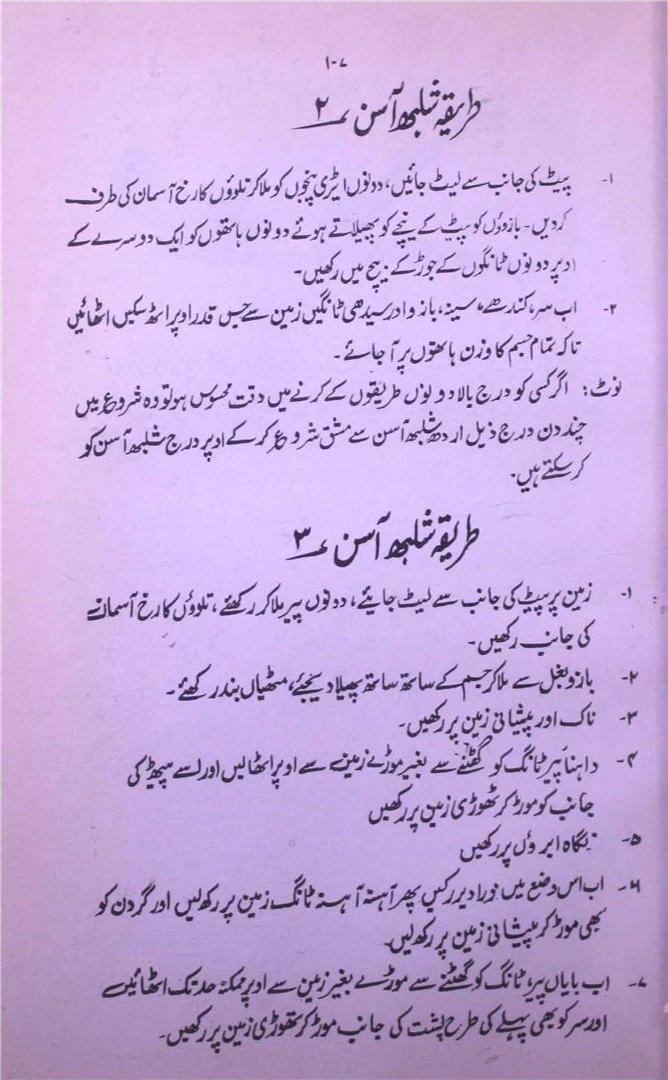 ۱۰۷
طریقہ شلبھ آسن ۲
۱- پیٹ کی جانب سے لیٹ جائیں، دونوں ایڑی پنجوں کو ملا کر تلوؤں کا رخ آسمان کی طرف
کردیں۔ بازوؤں کو پیٹ کے نیچے کو پھیلاتے ہوئے دونوں ہاتھوں کو ایک دوسرے کے
اوپر دونوں ٹانگوں کے جوڑ کے بیچ میں رکھیں۔
۲- اب سر، کندھے، سینہ، بازو اور سیدھی ٹانگیں زمین سے جس قدر اوپر اٹھ سکیں اٹھائیں
تاکہ تمام جسم کا وزن ہاتھوں پر آجائے۔
نوٹ: اگر کسی کو درج بالا دونوں طریقوں کے کرنے میں دقت محسوس ہو تو وہ شروع میں
چند دن درج ذیل اردھ شلبھ آسن سے مشق شروع کرکے اوپر درج شلبھ آسن کو
کرسکتے ہیں۔
طریقہ شلبھ آسن ۳
۱- زمین پر پیٹ کی جانب سے لیٹ جائیے، دونوں پیر ملا کر رکھئے، تلوؤں کا رخ آسمان
کی جانب رکھیں۔
۲- بازو بغل سے ملا کر جسم کے ساتھ ساتھ پھیلا دیجئے، مٹھیاں بند رکھئے۔
۳- ناک اور پیشانی زمین پر رکھیں۔
۴- داہنا پیر ٹانگ کو گھٹنے سے بغیر موڑے زمین سے اوپر اٹھالیں اور اسے پیٹھ کی
جانب کو موڑ کر ٹھوڑی زمین پر رکھیں
۵- نگاہ ابروؤں پر رکھیں
۶- اب اس وضع میں ذرا دیر رکیں پھر آہستہ آہستہ ٹانگ زمین پر رکھ لیں اور گردن کو
بھی موڑ کر پیشانی زمین پر رکھ لیں۔
۷- اب بایاں پیر، ٹانگ کو گھٹنے سے موڑے بغیر زمین سے اوپر ممکنہ حد تک اٹھائیں
اور سر کو بھی پہلے کی طرح پشت کی جانب موڑ کر ٹھوڑی زمین پر رکھیں۔